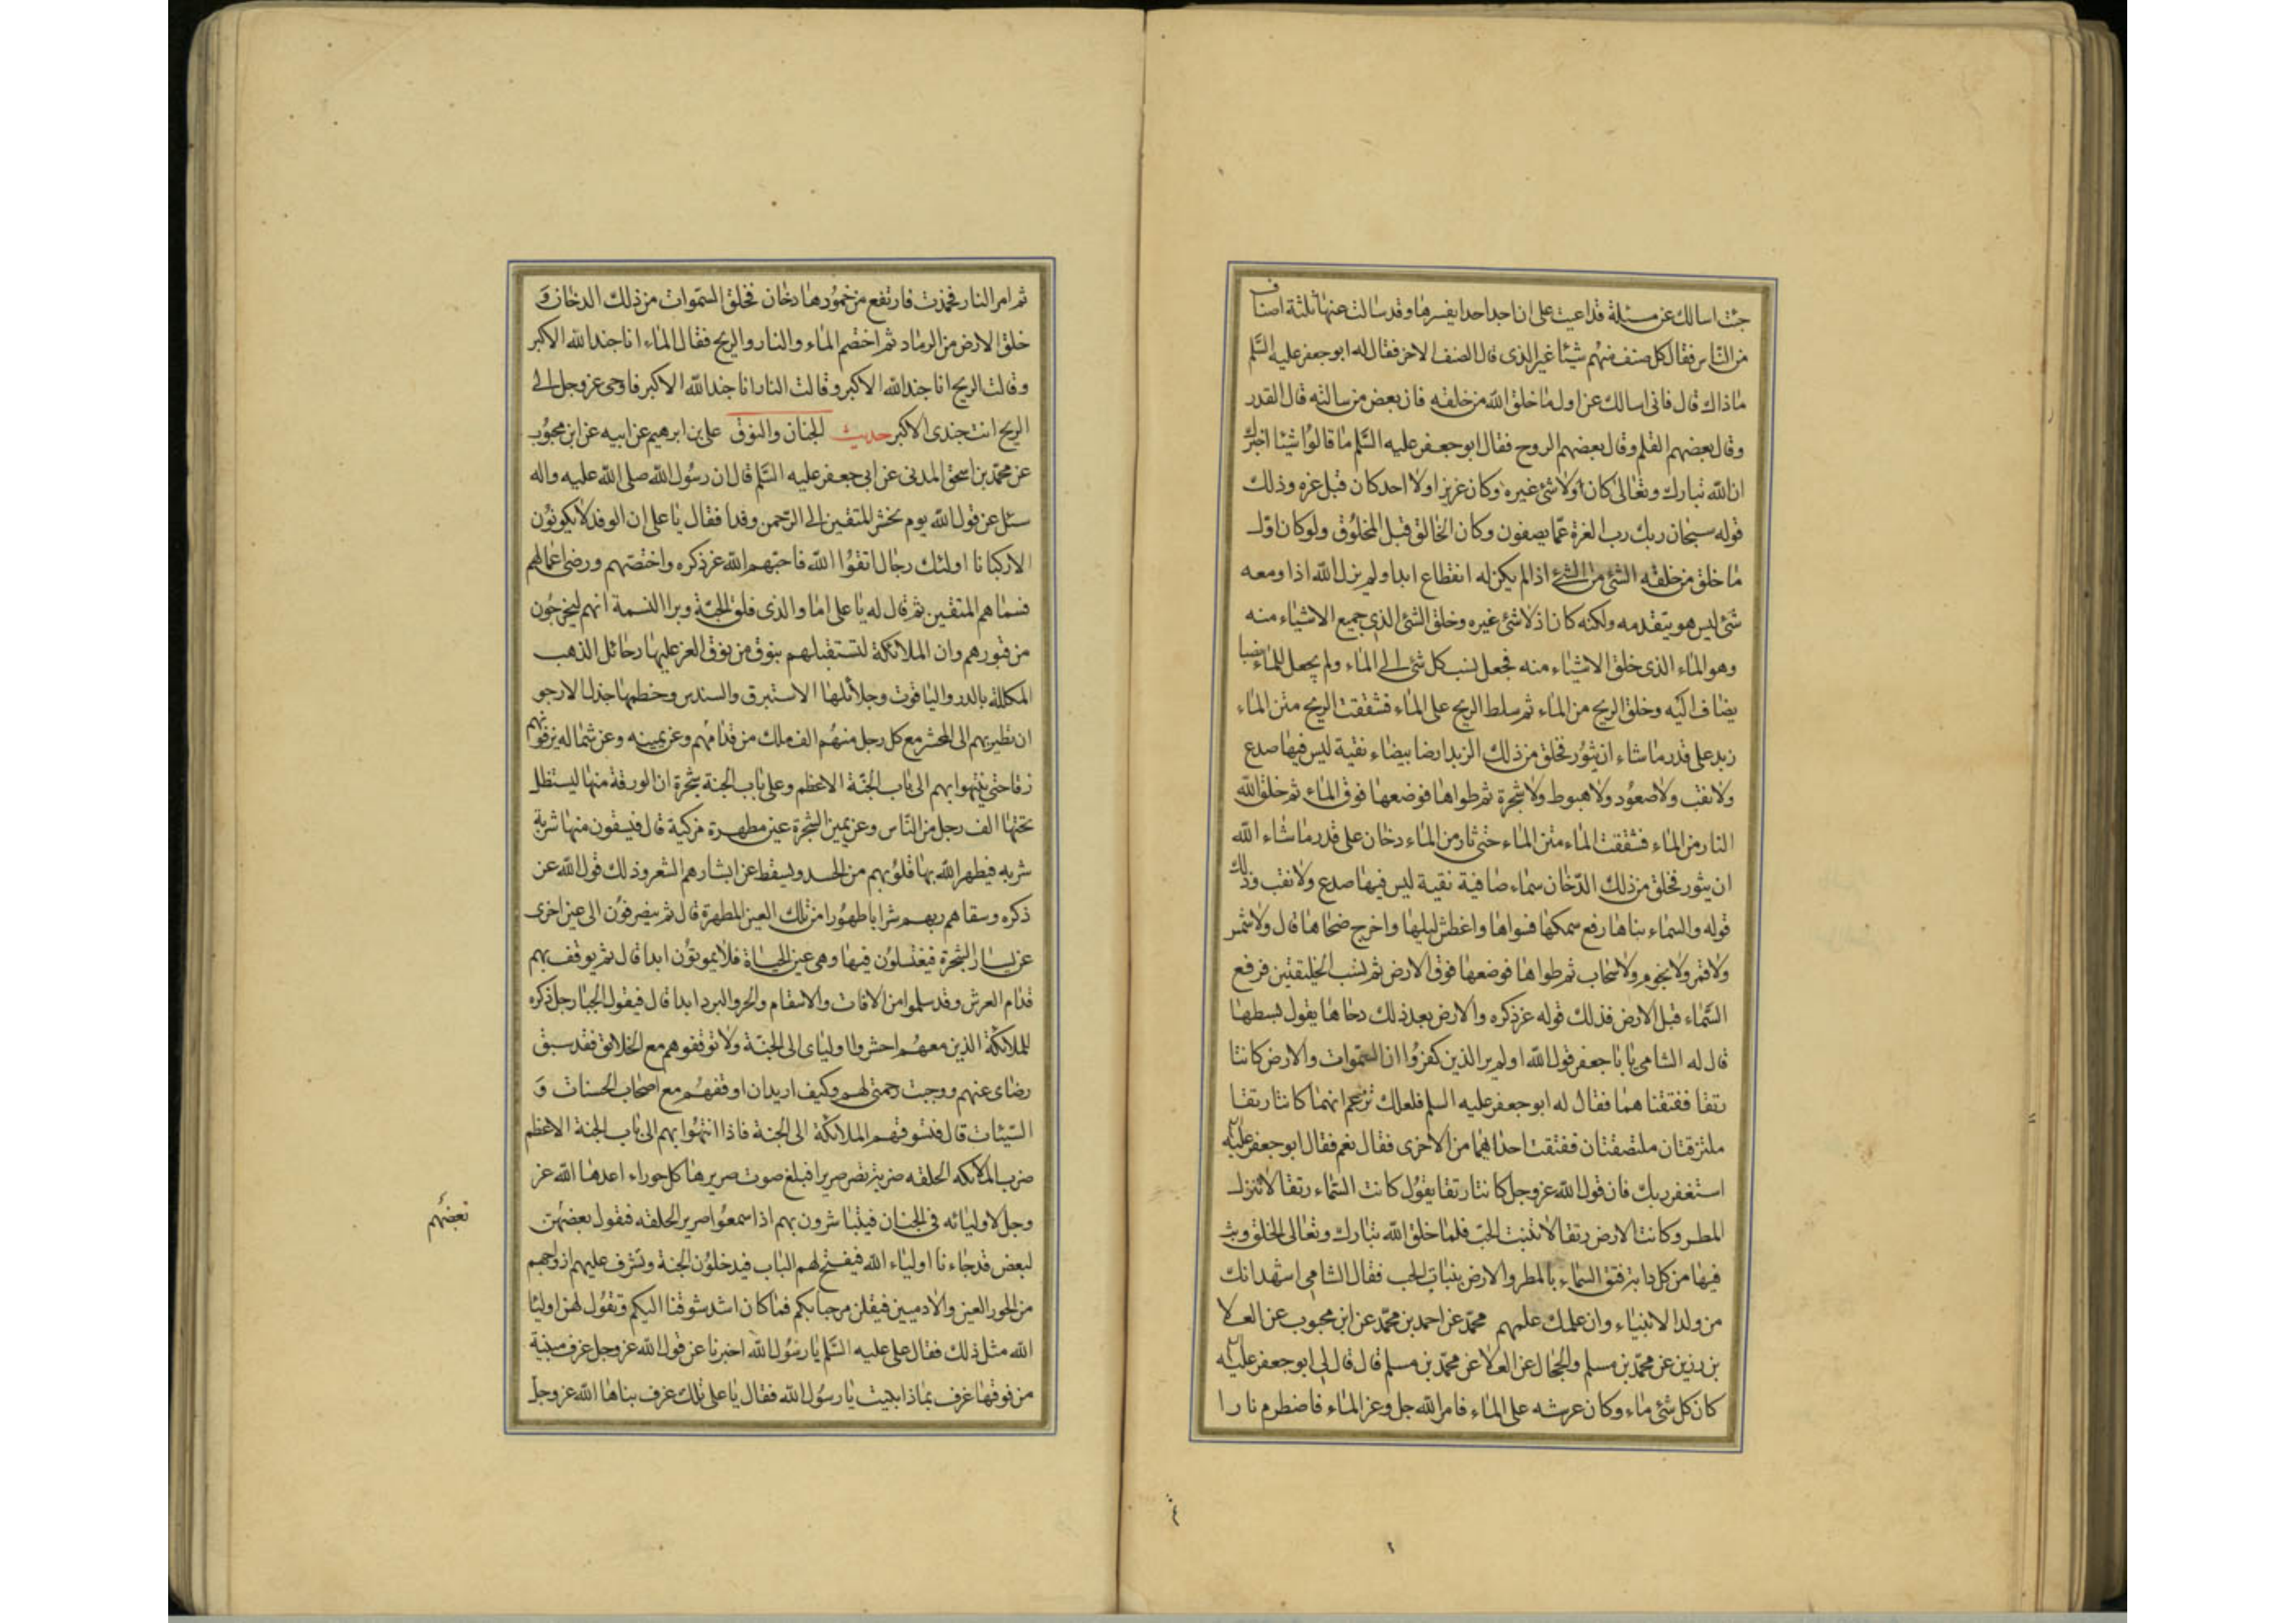 جئت اسالك عن مسئلة قد اعيت على ان اجد احدا يفسرها وقد سالت عنها ثلثة اصناف
من الناس فقال كل صنف منهم شيئا غير الذى قال الصنف الاخر فقال له ابو جعفر عليه السلم
ماذاك قال فانى اسالك عن اول ما خلق الله من خلقه فان بعض من سالته قال القدر
وقال بعضهم القلم وقال بعضهم الروح فقال ابو جعفر عليه السلم ما قالوا شيئا اخبرك
ان الله تبارك وتعالى كان ولا شئ غيره وكان عزيزا ولا احد كان قبل عزه وذلك
قوله سبحان ربك رب العزة عما يصفون وكان الخالق قبل المخلوق ولو كان اول
ما خلق من خلقه الشئ من الشئ اذا لم يكن له انقطاع ابدا ولم يزل الله اذا ومعه
شئ ليس هو يتقدمه ولكنه كان اذ لا شئ غيره وخلق الشئ الذى جميع الاشياء منه
وهو الماء الذى خلق الاشياء منه فجعل نسب كل شئ الى الماء ولم يجعل للماء نسبا
يضاف اليه وخلق الريح من الماء ثم سلط الريح على الماء فشققت الريح متن الماء
زبد على قدر ما شاء ان يثور فخلق من ذلك الزبد ارضا بيضاء نقية ليس فيها صدع
ولا نقب ولا صعود ولا هبوط ولا شجرة ثم طواها فوضعها فوق الماء ثم خلق الله
النار من الماء فشققت الماء متن الماء حتى ثار من الماء دخان على قدر ما شاء الله
ان يثور فخلق من ذلك الدخان سماء صافية نقية ليس فيها صدع ولا نقب وذلك
قوله والسماء بناها رفع سمكها فسواها واغطش ليلها واخرج ضحاها قال ولا شمس
ولا قمر ولا نجوم ولا سحاب ثم طواها فوضعها فوق الارض ثم نسب الخليقتين فرفع
السماء قبل الارض فذلك قوله عز ذكره والارض بعد ذلك دحاها يقول بسطها
قال له الشامى يا با جعفر قول الله اولم ير الذين كفروا ان السموات والارض كانتا
رتقا ففتقناهما فقال له ابو جعفر عليه السلم فلعلك تزعم انهما كانتا رتقا
ملتزقتان ملتصقتان ففتقت احداهما من الاخرى فقال نعم فقال ابو جعفر عليه
استغفر ربك فان قول الله عز وجل كانتا رتقا يقول كانت السماء رتقا لا تنزل
المطر وكانت الارض رتقا لا تنبت الحب فلما خلق الله تبارك وتعالى الخلق وبث
فيها من كل دابة فتق السماء بالمطر والارض بنبات الحب فقال الشامى اشهد انك
من ولد الانبياء وان علمك علمهم محمد عن احمد بن محمد عن ابن محبوب عن العلا
بن رزين عن محمد بن مسلم والحجال عن العلا عن محمد بن مسلم قال قال لى ابو جعفر عليه
كان كل شئ ماء وكان عرشه على الماء فامر الله جل وعز الماء فاضطرم نارا
ثم امر النار فخمدت فارتفع من خمودها دخان فخلق السموات من ذلك الدخان و
خلق الارض من الرماد ثم اختصم الماء والنار والريح فقال الماء انا جند الله الاكبر
وقالت الريح انا جند الله الاكبر وقالت النار انا جند الله الاكبر فاوحى عز وجل الى
الريح انت جندى الاكبر حديث الجنان والنوق على بن ابرهيم عن ابيه عن ابن محبوب
عن محمد بن اسحق المدنى عن ابى جعفر عليه السلم قال ان رسول الله صلى الله عليه واله
سئل عن قول الله يوم نحشر المتقين الى الرحمن وفدا فقال يا على ان الوفد لا يكونون
الا ركبانا اولئك رجال اتقوا الله فاحبهم الله عز ذكره واختصهم ورضى اعمالهم
فسماهم المتقين ثم قال له يا على اما والذى فلق الحبة وبرا النسمة انهم ليخرجون
من قبورهم وان الملائكة لتستقبلهم بنوق من نوق العز عليها رحائل الذهب
المكللة بالدر والياقوت وجلائلها الاستبرق والسندس وخطمها جدل الارجو
ان تطير بهم الى المحشر مع كل رجل منهم الف ملك من قدامهم وعن يمينه وعن شماله يزفونهم
زفا حتى ينتهوا بهم الى باب الجنة الاعظم وعلى باب الجنة شجرة ان الورقة منها ليستظل
تحتها الف رجل من الناس وعن يمين الشجرة عين مطهرة مزكية قال فيسقون منها شربة
شربه فيطهر الله بها قلوبهم من الحسد ويسقط عن ابشارهم الشعر وذلك قول الله عز
ذكره وسقاهم ربهم شرابا طهورا من تلك العين المطهرة قال ثم ينصرفون الى عين اخرى
عن يسار الشجرة فيغتسلون فيها وهى عين الحياة فلا يموتون ابدا قال ثم يوقف بهم
قدام العرش وقد سلموا من الافات والاسقام والحر والبرد ابدا قال فيقول الجبار جل ذكره
للملائكة الذين معهم احشروا اوليائى الى الجنة ولا توقفوهم مع الخلائق فقد سبق
رضاى عنهم ووجبت رحمتى لهم وكيف اريد ان اوقفهم مع اصحاب الحسنات و
السيئات قال فتسوقهم الملائكة الى الجنة فاذا انتهوا بهم الى باب الجنة الاعظم
ضرب الملائكه الحلقه ضربة تصر صريرا فبلغ صوت صريرها كل حوراء اعدها الله عز
وجل لاوليائه فى الجنان فيتباشرون بهم اذا سمعوا صرير الحلقه فيقول بعضهن
لبعض قد جاءنا اولياء الله فيفتح لهم الباب فيدخلون الجنة وتشرف عليهم ازواجهم
من الحور العين والادميين فيقلن مرحبا بكم فما كان اشد شوقنا اليكم وتقول لهن اوليا
الله مثل ذلك فقال على عليه السلم يا رسول الله اخبرنا عن قول الله عز وجل غرف مبنية
من فوقها غرف بماذا بنيت يا رسول الله فقال يا على تلك غرف بناها الله عز وجل
بعضهم